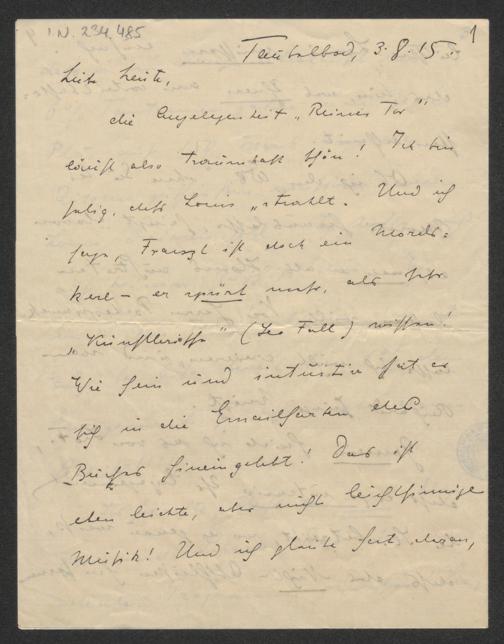 I.N. 234.485
1
3.8.15.
Liebe Leute,
die Angelegenheit „Reiner Tor"
läuft also traumhaft schön! Ich bin
selig, daß Louis „strahlt". Und ich
sage, Franzl ist doch ein Mords-
kerl – er spürt mehr, als sehr
(Leo Fall) wissen!
Wie fein und intuitiv hat er
sich in die Emailfarben des
Buches hineingelebt! Das ist
eben leichte, aber nicht leichtsinnige
Musik! Und ich glaube fest daran,